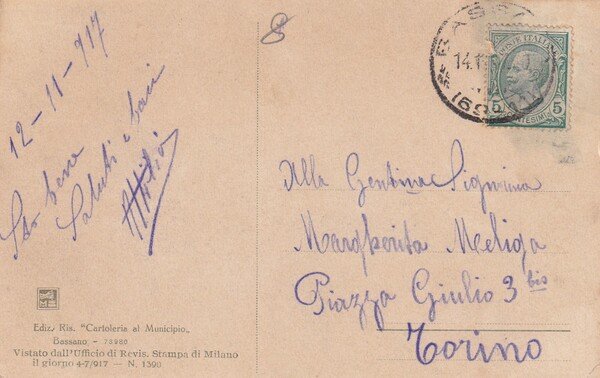 12-11-917
Sto bene
Saluti e baci
Attilio
Ediz. Ris. "Cartoleria al Municipio„
Bassano - 78980
Vistato dall'Ufficio di Revis. Stampa di Milano
il giorno 4-7/917 — N. 1390
8
BASS
14.1
POSTE ITALIANE
5 CENTESIMI 5
Alla Gentina Signorina
Margherita Meliga
Piazza Giulio 3 bis
Torino